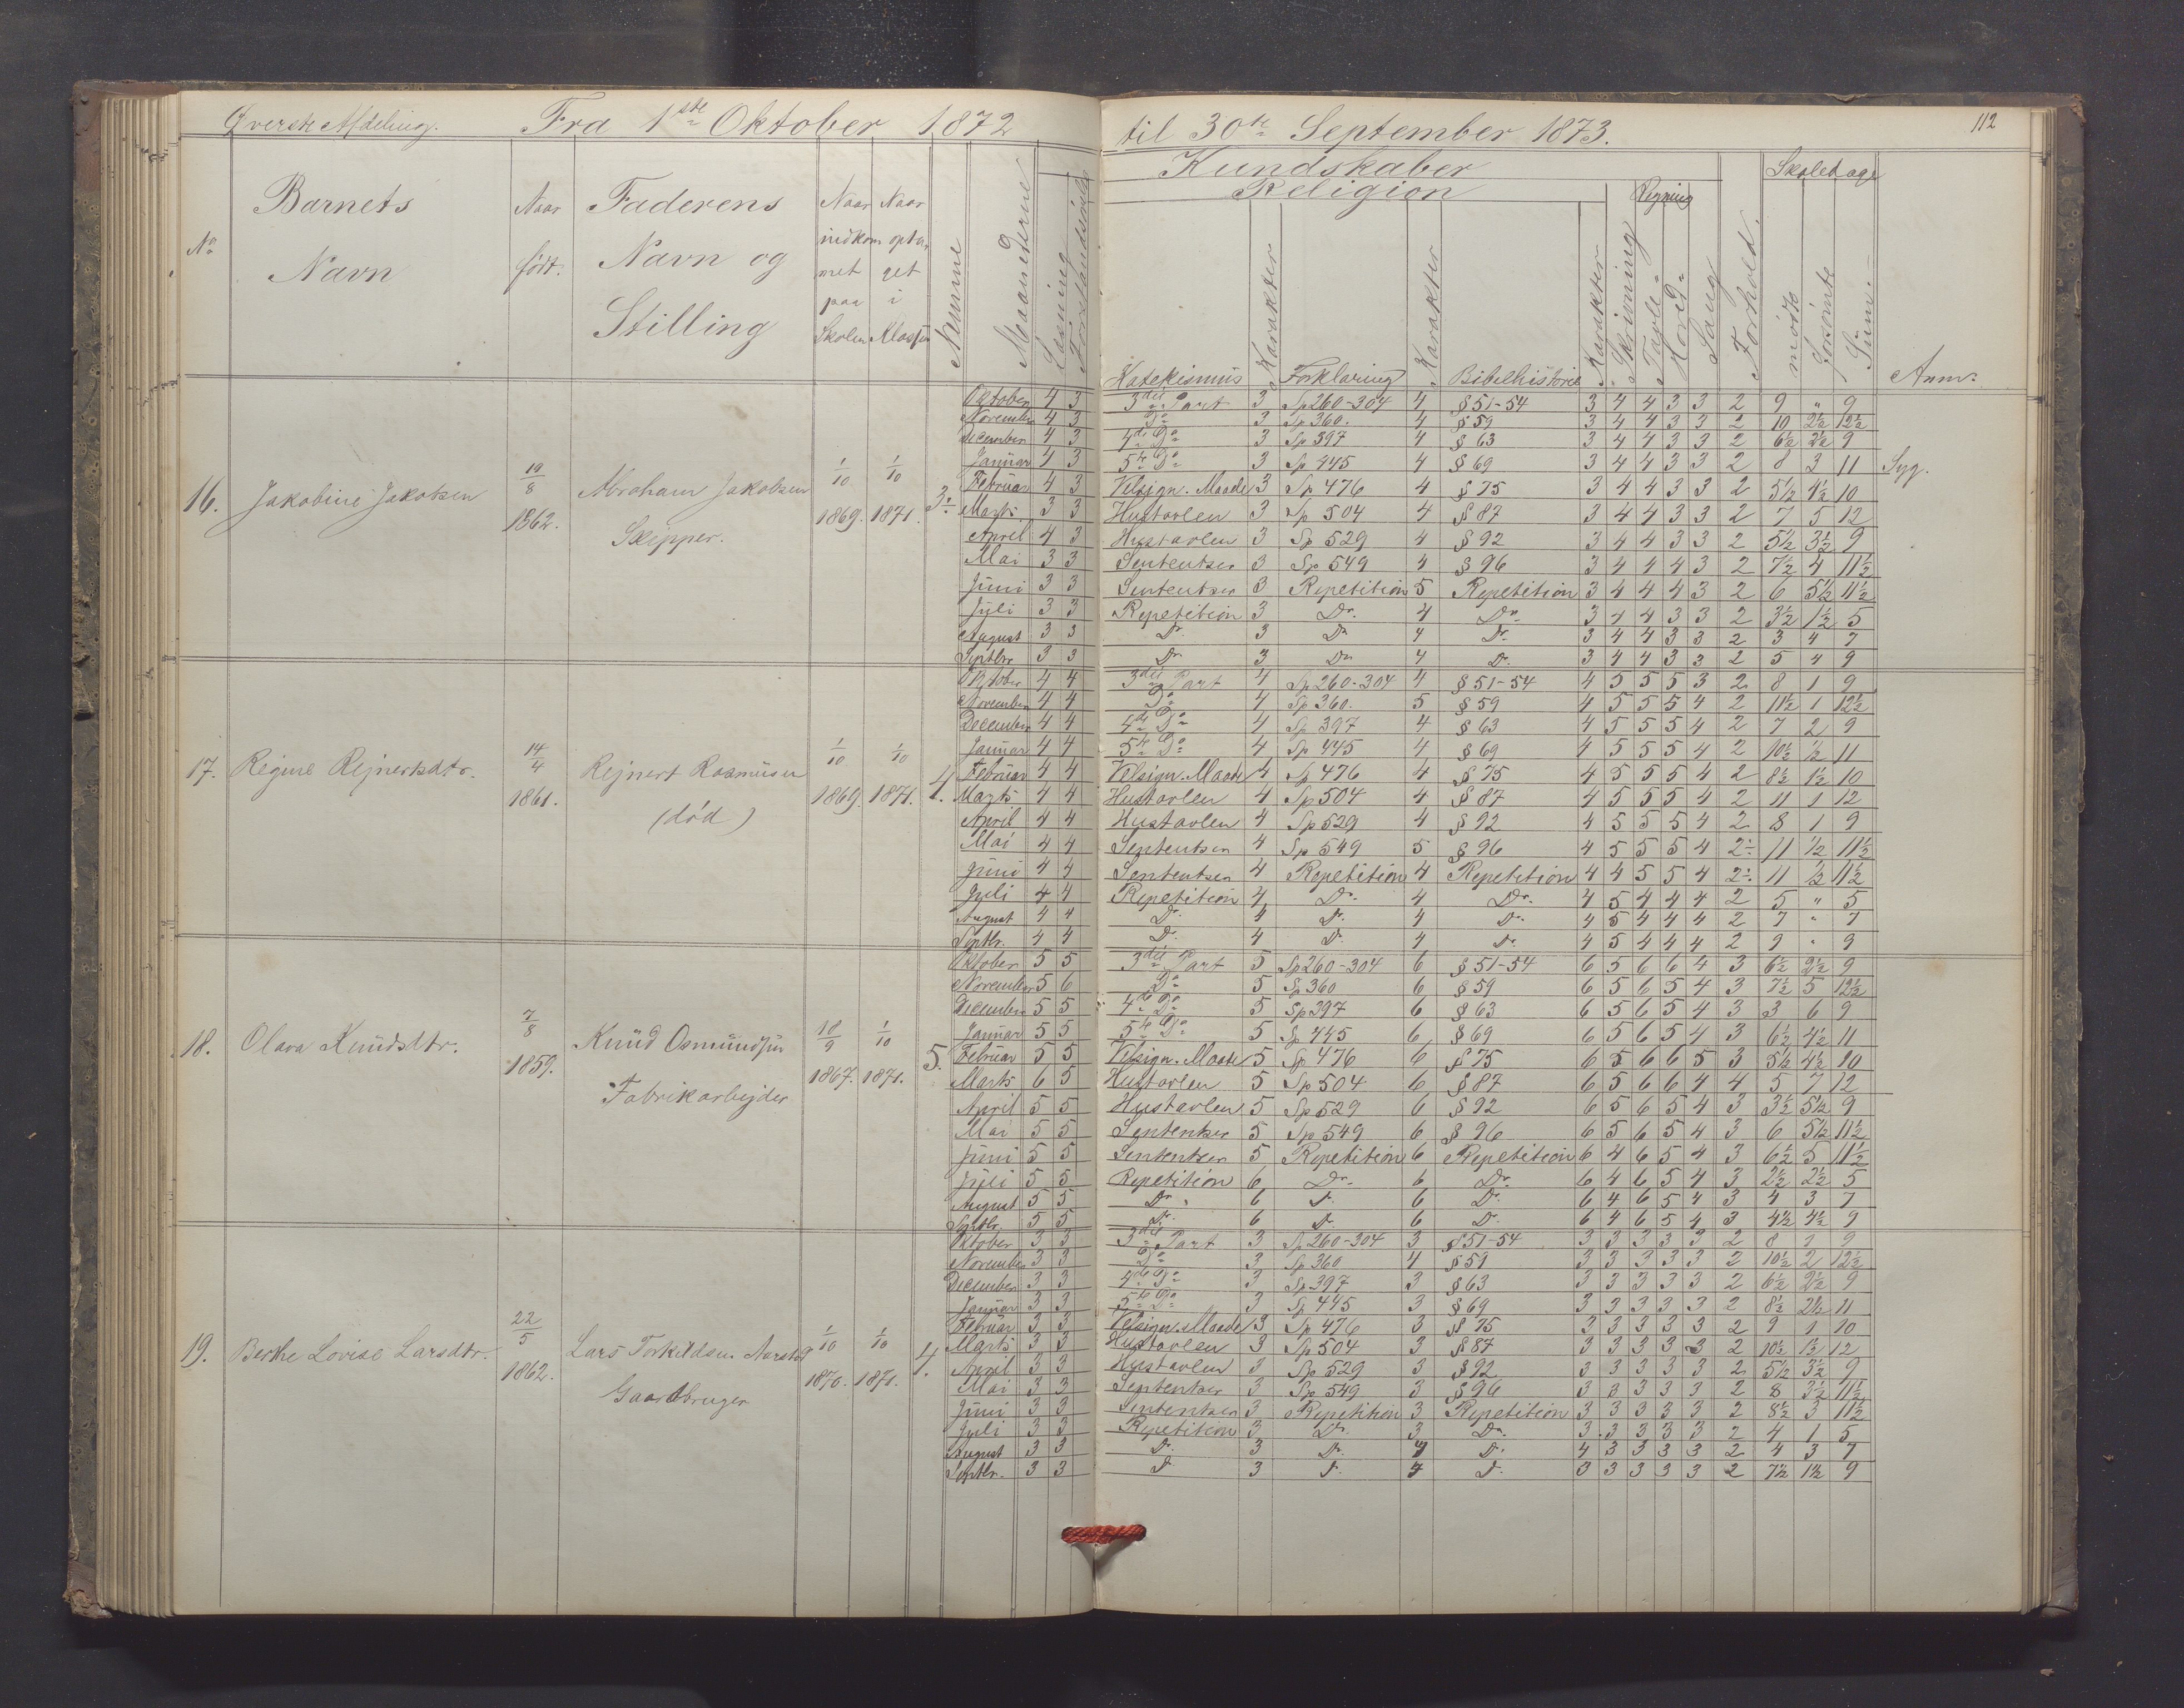 Øverste Afdeling. Fra 1ste Oktober 1872 til 30te September 1873. 112
Kundskaber Skoledage
Religion Regning
No Barnets Navn Naar født. Faderens Navn og Stilling Naar indkommet paa Skolen Naar optaget i Klassen Numne Maanederne Læsning Forstandsøvelse Katekismus Karakter Forklaring Karakter Bibelhistorie Karakter Skrivning Tavle- Hoved- Sang Forhold. mødte forsømte Sum. Anm.
16. Jakobine Jakobsen 19/8 1862. Abraham Jakobsen Skipper. 1/10 1869. 1/10 1871. 3.
Oktober 4 3 3die Part 3 Sp 260-304 4 § 51-54 3 4 4 3 3 2 9 " 9
November 4 3 Do 3 Sp 360. 4 § 59 3 4 4 3 3 2 10 2½ 12½
December 4 3 4de Do 3 Sp 397 4 § 63 3 4 4 3 3 2 6½ 2½ 9
Januar 4 3 5te Do 3 Sp 445 4 § 69 3 4 4 3 3 2 8 3 11 Syg.
Februar 4 3 Velsign. Maade 3 Sp 476 4 § 75 3 4 4 3 3 2 5½ 4½ 10
Marts 3 3 Hustavlen 3 Sp 504 4 § 87 3 4 4 3 3 2 7 5 12
April 4 3 Hustavlen 3 Sp 529 4 § 92 3 4 4 3 3 2 5½ 3½ 9
Mai 3 3 Sententser 3 Sp 549 4 § 96 3 4 4 4 3 2 7½ 4 11½
Juni 3 3 Sententser 3 Repetition 5 Repetition 3 4 4 4 3 2 6 5½ 11½
Juli 3 3 Repetition 3 Do. 4 Do. 3 4 4 3 3 2 3½ 1½ 5
August 3 3 Do 3 Do 4 Do. 3 4 4 3 3 2 3 4 7
Septbr 3 3 Do 3 Do 4 Do. 3 4 4 3 3 2 5 4 9
17. Regine Rejnertsdtr. 14/4 1861. Rejnert Rasmusen (død) 1/10 1869. 1/10 1871. 1.
Oktober 4 4 3die Part 4 Sp 260-304 4 § 51-54 4 5 5 5 3 2 8 1 9
November 4 4 Do 4 Sp 360. 5 § 59 4 5 5 5 4 2 11½ 1 12½
December 4 4 4de Do 4 Sp 397 4 § 63 4 5 5 5 4 2 7 2 9
Januar 4 4 5te Do 4 Sp 445 4 § 69 4 5 5 5 4 2 10½ ½ 11
Februar 4 4 Velsign. Maade 4 Sp 476 4 § 75 4 5 5 5 4 2 8½ 1½ 10
Marts 4 4 Hustavlen 4 Sp 504 4 § 87 4 5 5 5 4 2 11 1 12
April 4 4 Hustavlen 4 Sp 529 4 § 92 4 5 5 5 4 2 8 1 9
Mai 4 4 Sententser 4 Sp 549 5 § 96 4 5 5 5 4 2÷ 11 ½ 11½
Juni 4 4 Sententser 4 Repetition 4 Repetition 4 4 5 5 4 2÷ 11 ½ 11½
Juli 4 4 Repetition 4 Do. 4 Do. 4 5 4 4 4 2 5 " 5
August 4 4 Do. 4 Do. 4 Do. 4 5 4 4 4 2 7 " 7
Septbr. 4 4 Do. 4 Do. 4 Do. 4 5 4 4 4 2 9 " 9
18. Olava Knudsdtr. 7/8 1859. Knud Osmundsen Fabrikarbejder 18/9 1867. 1/10 1871. 5.
Oktober 5 5 3die Part 5 Sp 260-304 6 § 51-54 6 5 6 6 4 3 6½ 2½ 9
November 5 6 Do 5 Sp 360 6 § 59 6 5 6 5 4 3 7½ 5 12½
December 5 5 4de Do 5 Sp 397 6 § 63 6 5 6 5 4 3 3 6 9
Januar 5 5 5te Do 5 Sp 445 6 § 69 6 5 6 5 4 3 6½ 4½ 11
Februar 5 5 Velsign. Maade 5 Sp 476 6 § 75 6 5 6 6 5 3 5½ 4½ 10
Marts 6 5 Hustavlen 5 Sp 504 6 § 87 6 5 6 6 4 4 5 7 12
April 5 5 Hustavlen 5 Sp 529 6 § 92 6 5 6 5 4 3 3½ 5½ 9
Mai 5 5 Sententser 5 Sp 549 6 § 96 6 5 6 5 4 3 6 5½ 11½
Juni 5 5 Sententser 5 Repetition 6 Repetition 6 4 6 5 4 3 6½ 5 11½
Juli 5 5 Repetition 6 Do. 6 Do. 6 4 6 5 4 3 2½ 2½ 5
August 5 5 Do. 6 Do. 6 Do. 6 4 6 5 4 3 4 3 7
Septbr. 5 5 Do. 6 Do. 6 Do. 6 4 6 5 4 3 4½ 4½ 9
19. Berthe Lovise Larsdtr. 22/5 1862. Lars Torkildsen Aarstad Gaardbruger 1/10 1870. 1/10 1871. 4.
Oktober 3 3 3die Part 3 Sp 260-304 3 § 51-54 3 3 3 3 3 2 8 1 9
November 3 3 Do 3 Sp 360 4 § 59 3 3 3 3 3 2 10½ 2 12½
December 3 3 4de Do 3 Sp 397 3 § 63 3 3 3 3 3 2 6½ 2½ 9
Januar 3 3 5te Do 3 Sp 445 3 § 69 3 3 3 3 3 2 8½ 2½ 11
Februar 3 3 Velsign. Maade 3 Sp 476 3 § 75 3 3 3 3 3 2 9 1 10
Marts 3 3 Hustavlen 3 Sp 504 3 § 87 3 3 3 3 3 2 10½ 1½ 12
April 3 3 Hustavlen 3 Sp 529 3 § 92 3 3 3 3 3 2 5½ 3½ 9
Mai 3 3 Sententser 3 Sp 549 3 § 96 3 3 3 3 3 2 8 3½ 11½
Juni 3 3 Sententser 3 Repetition 3 Repetition 3 3 3 3 3 2 8½ 3 11½
Juli 3 3 Repetition 3 Do. 3 Do. 3 3 3 3 3 2 4 1 5
August 3 3 Do. 3 Do. 4 Do. 4 3 3 3 3 2 4 3 7
Septbr. 3 3 Do 3 Do. 4 Do. 3 3 3 3 3 2 7½ 1½ 9